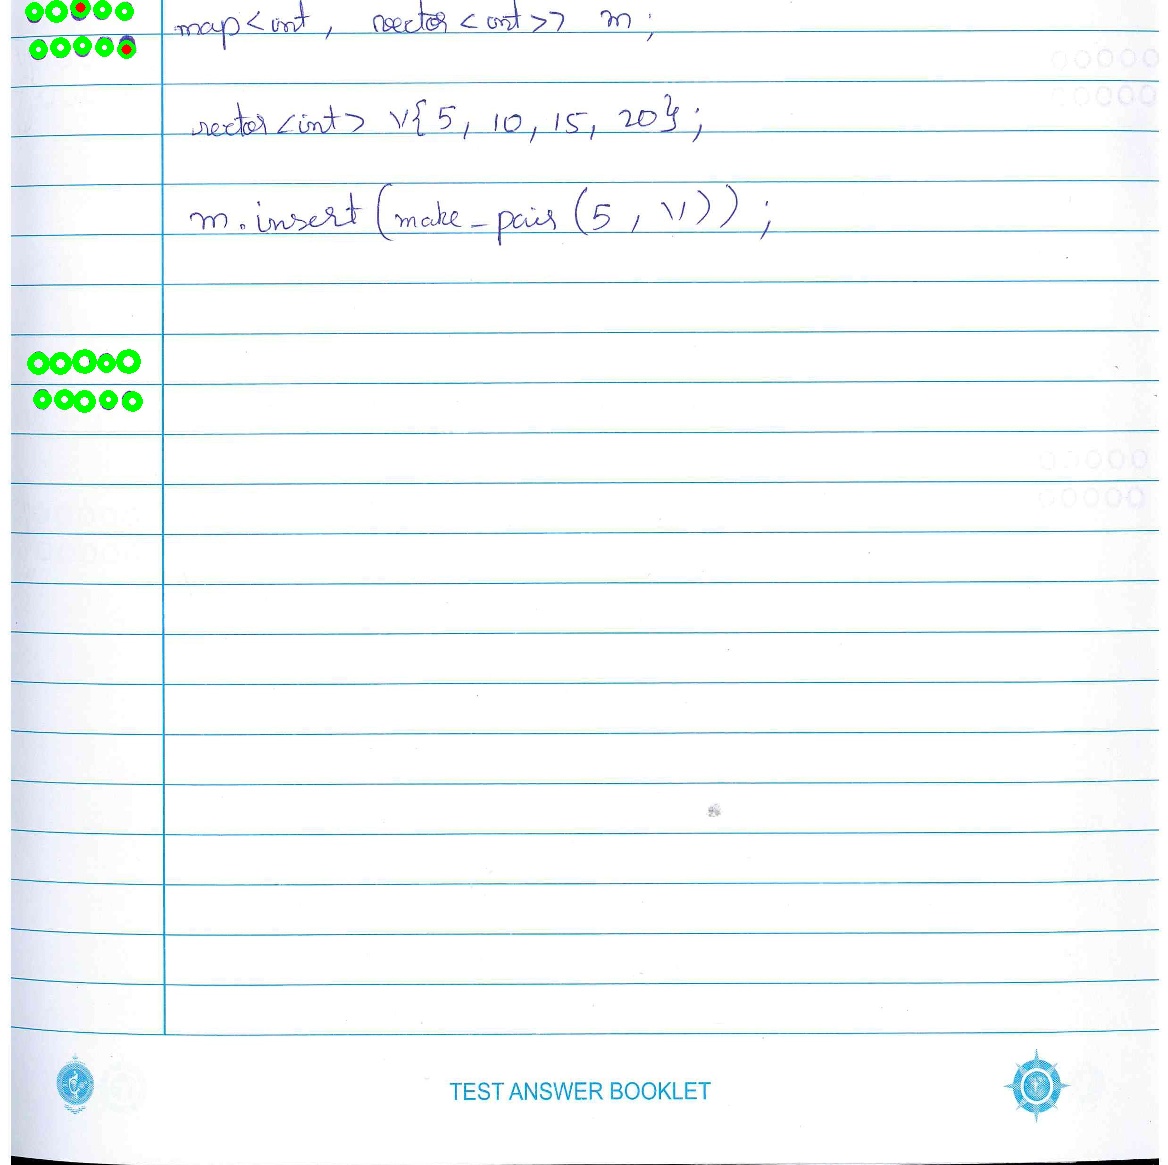 map<int, vector<int>> m;
vector<int> v{5, 10, 15, 20};
m.insert(make_pair(5, v));
TEST ANSWER BOOKLET